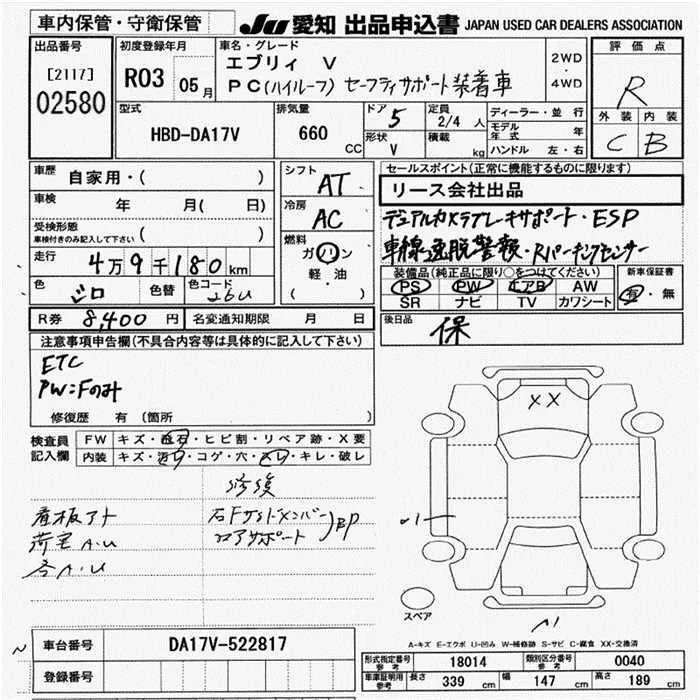 車内保管・守衛保管 JU 愛知 出品申込書 JAPAN USED CAR DEALERS ASSOCIATION
出品番号 [2117] 02580
初度登録年月 R03 05月
車名・グレード エブリィ V
PC(ハイルーフ) セーフティサポート装着車
2WD・4WD
評価点 R
外装 内装
C B
型式 HBD-DA17V
排気量 660 CC
ドア 5
定員 2/4 人
形状 V
積載 kg
ディーラー・並行
モデル年式 年
ハンドル 左・右
車歴 自家用・( )
車検 年 月( 日)
受検形態 車検付きのみ記入して下さい ( )
走行 4万9千180km
色 シロ 色替 色コード 26U
シフト AT
冷房 AC
燃料 ガソリン
軽・油
( )
セールスポイント(正常に機能するものに限ります)
リース会社出品
デュアルカメラブレーキサポート・ESP
車線逸脱警報・Rパーキングセンサー
装備品(純正品に限り○をつけてください)
PS PW エアB AW
SR ナビ TV カワシート
新車保証書
有・無
R券 8,400 円 名変通知期限 月 日
後日品 保
注意事項申告欄(不具合内容等は具体的に記入して下さい)
ETC
PW:Fのみ
修復歴 有 (箇所 )
検査員記入欄 FW キズ・飛石・ヒビ割・リペア跡・X要
内装 キズ・汚れ・コゲ・穴・スレ・キレ・破レ
修復
看板アト 右Fサイドメンバー
荷室A.U コアサポート BP
各A.U
XX
スペア
A-キズ E-エクボ U-凹み W-補修跡 S-サビ C-腐食 XX-交換済
車台番号 DA17V-522817
登録番号
形式指定番号 参考 18014 類別区分番号 参考 0040
車庫証明用 参考 長さ 339 cm 幅 147 cm 高さ 189 cm